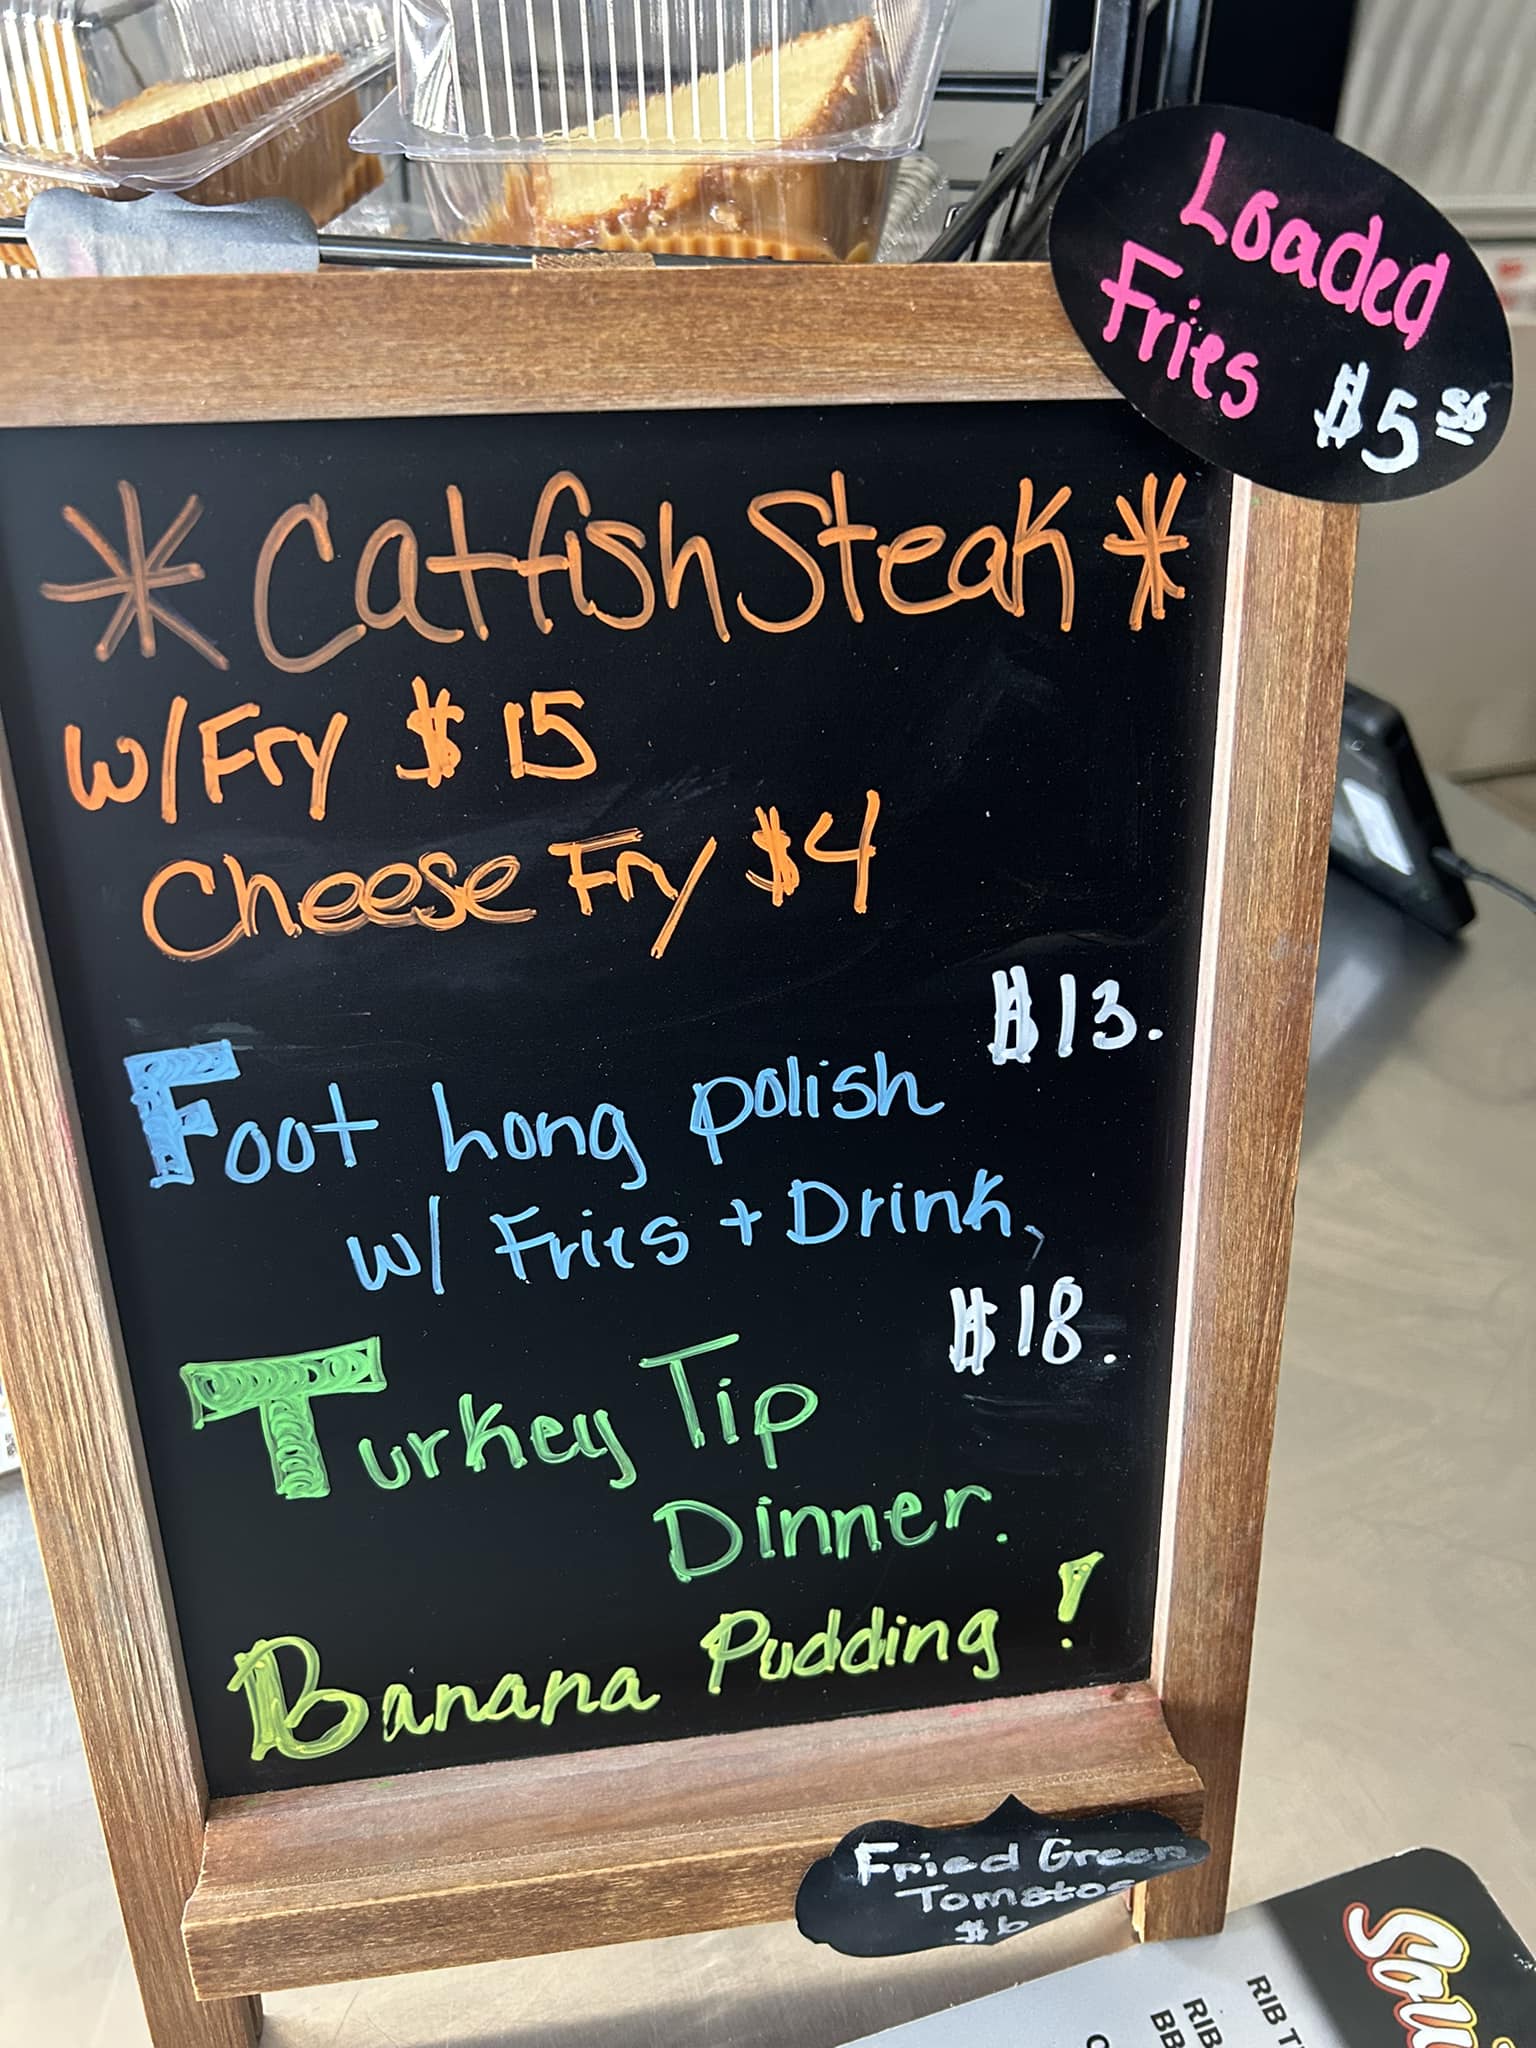 Loaded
Fries $5.50
* Catfish Steak *
w/Fry $15
Cheese Fry $4
$13.
Foot hong polish
w/ Fries + Drink,
$18.
Turkey Tip
Dinner.
Banana Pudding!
Fried Green
Tomatoe
$6
RIB
BB